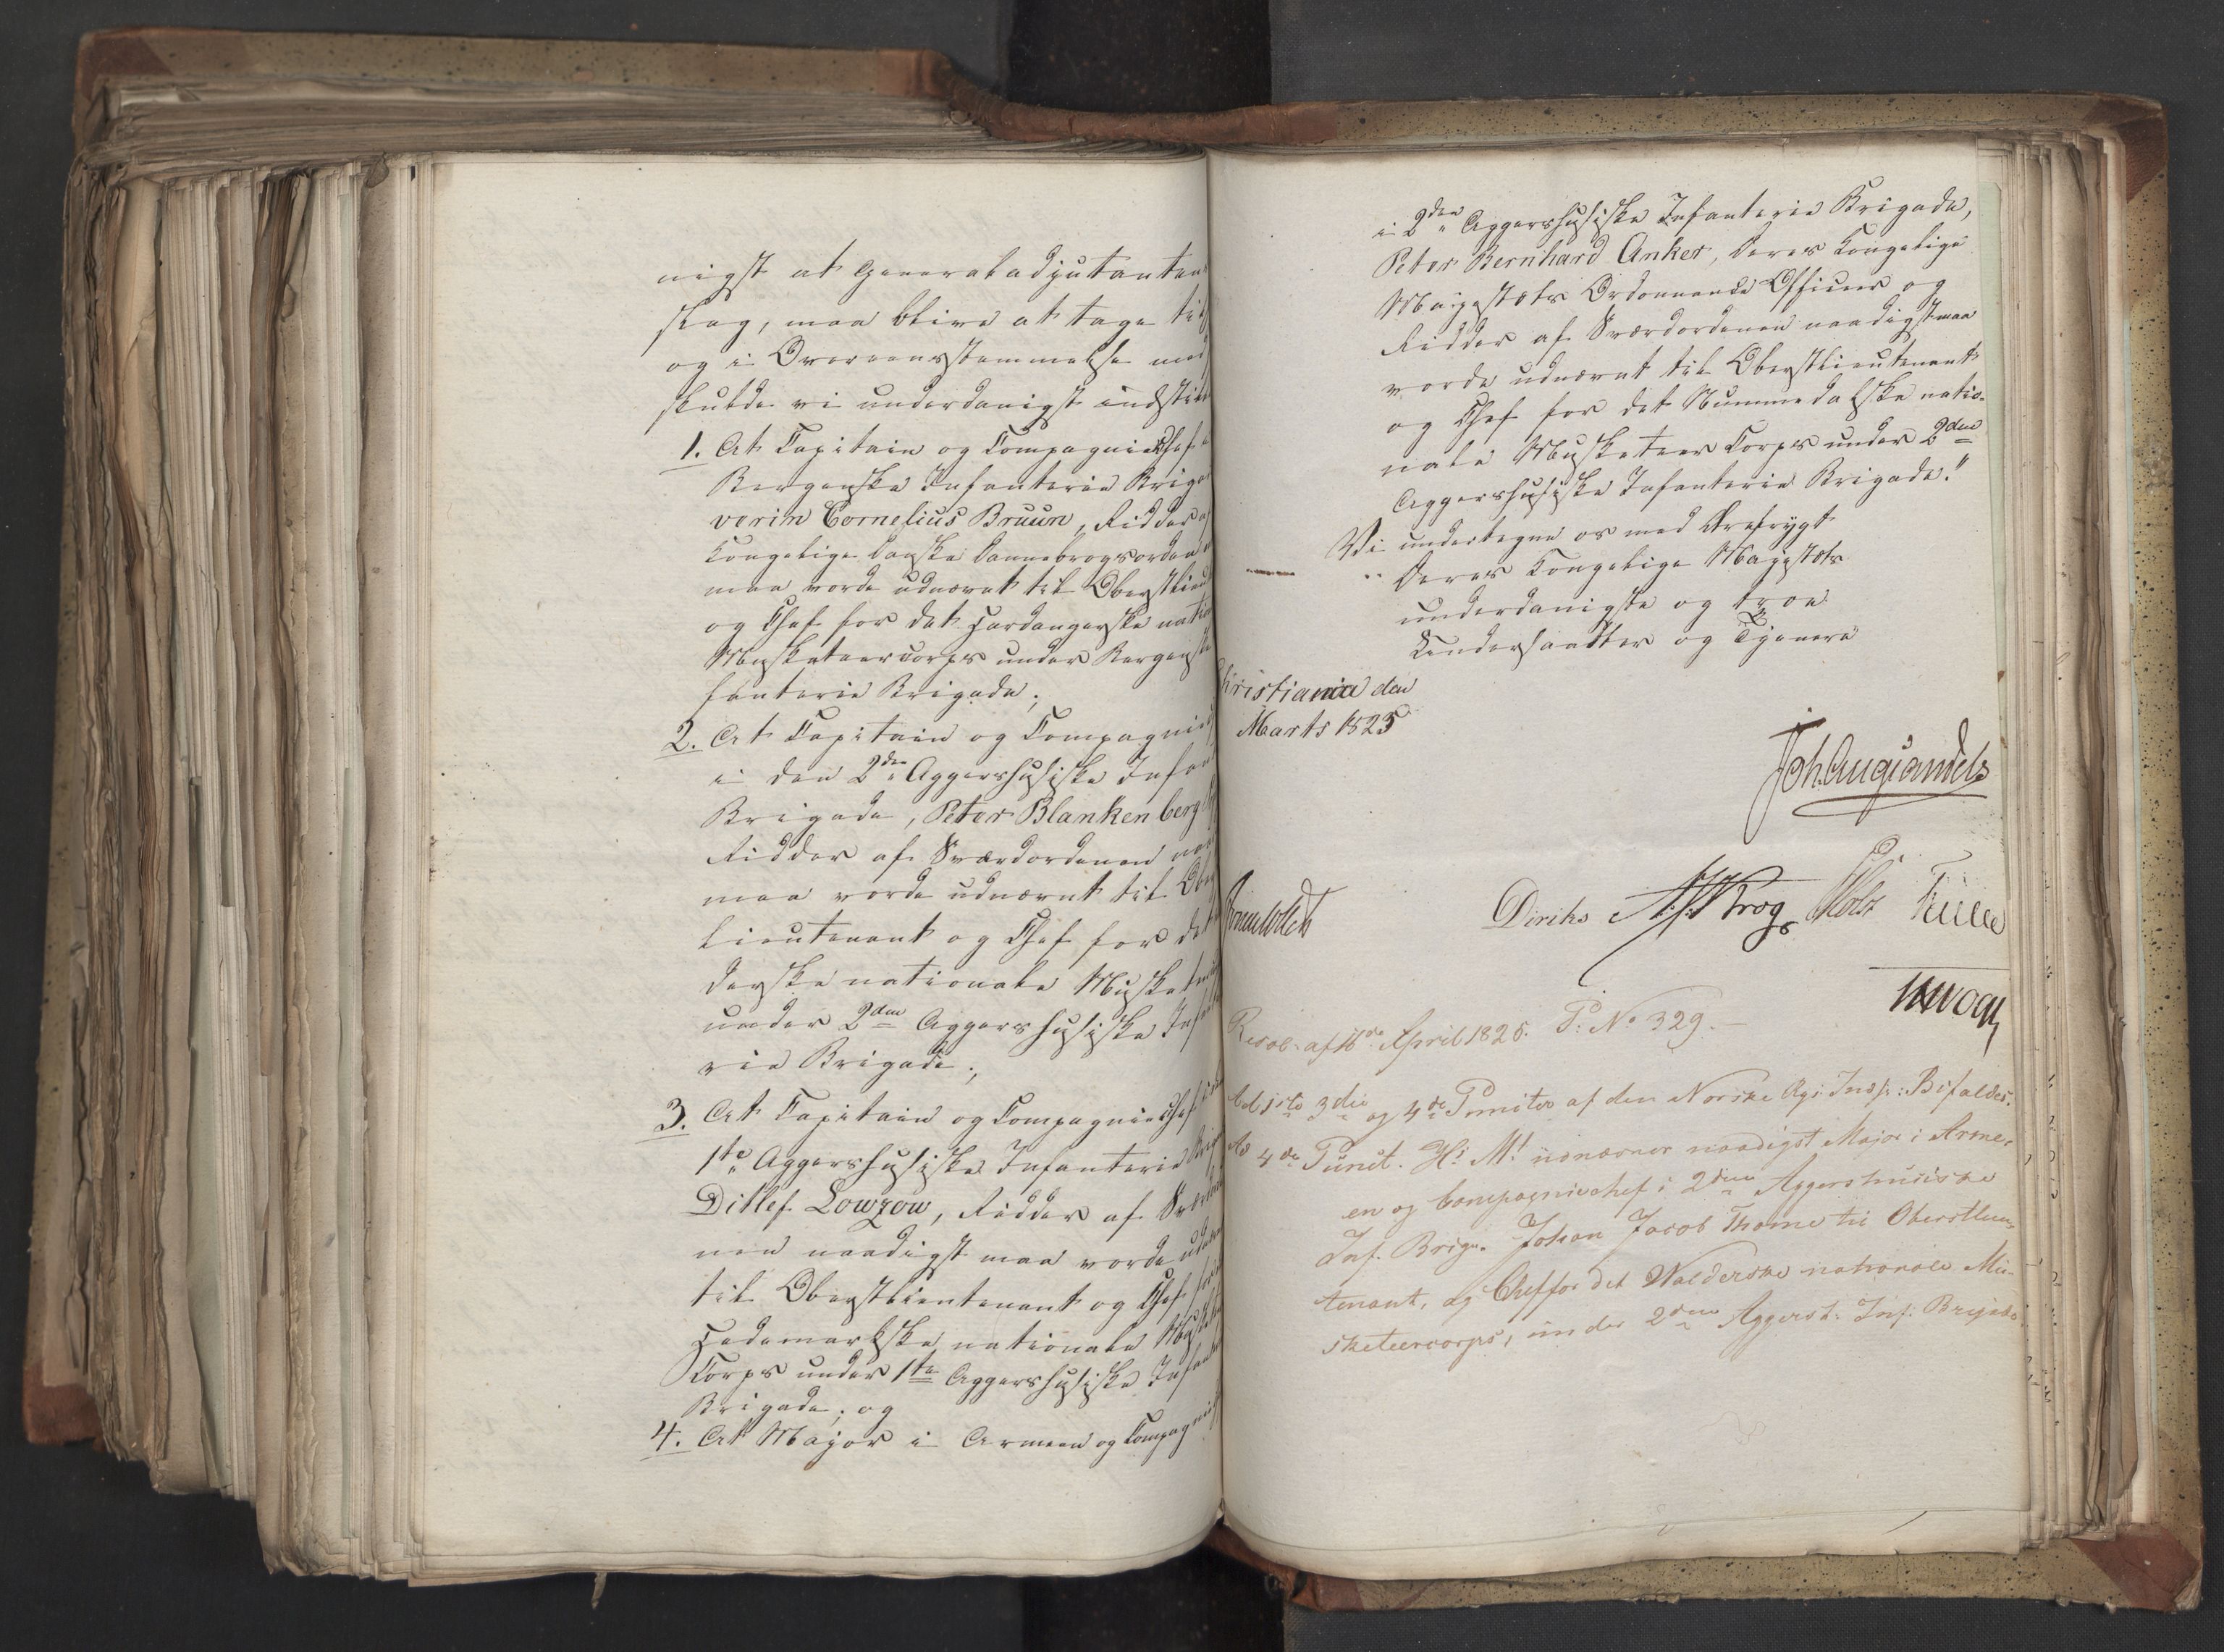 nigst at Generaladjutanten
slag, maa blive at tage til
og i Overeensstemmelse med
skulde vi underdanigst indstil
1. At Capitain og Compagniechef
Bergenske Infanterie Briga
verin Cornelius Bruun, Ridder a
Kongelige Danske Dannebrogsorden
maa vorde udnævnt til Oberstlieut
og Chef for det Hardangerske natio
Musketeercorps under Bergenske
fanterie Brigade;
2. At Capitain og Compagniech
i den 2den Aggershusiske Infan
Brigade, Peter Blankenberg
Ridder af Sværdordenen naa
maa vorde udnævnt til Oberst
lieutenant og Chef for det
derske nationale Musketeer
under 2den Aggershusiske Infante
rie Brigade;
3. At Capitain og Compagniechef i den
1ste Aggershusiske Infanterie Brig
Ditlef Lowzow, Ridder af Sværdorde
nen naadigst maa vorde udnævnt
til Oberstlieutenant og Chef for
Hedemarkske nationale Musketeer
Corps under 1ste Aggershusiske Infanterie
Brigade; og
4. At Major i Armeen og Compagniech
i 2den Aggershusiske Infanterie Brigade,
Peter Bernhard Anker, Deres Kongelige
Majestæts Ordonnance Officeer og
Ridder af Sværdordenen naadigst maa
vorde udnævnt til Oberstlieutenant
og Chef for det Nummedalske natio-
nale Musketeer Corps under 2den
Aggershusiske Infanterie Brigade."
Vi undertegne os med Ærefrygt
Deres Kongelige Majestæts
underdanigste og troe
Undersaatter og Tjenere
Christiania den
Marts 1825
Joh. Aug. Sandels
Diriks Krog Holst
Resol. af 16de April 1825. P: No 329.
Ad 1ste 3die og 4de Puncter af den Norske Rgs: Indst: Bifaldes.
Ad 4de Punct. Hs Mt udnævner naadigst Major i Arme-
en og Compagniechef i 2den Aggershusiske
Inf. Brig. Johan Jacob Thome til Oberstlieu-
tenant, og Chef for det Walderske nationale Mu-
sketeercorps, under 2den Aggersh: Inf: Brigade.